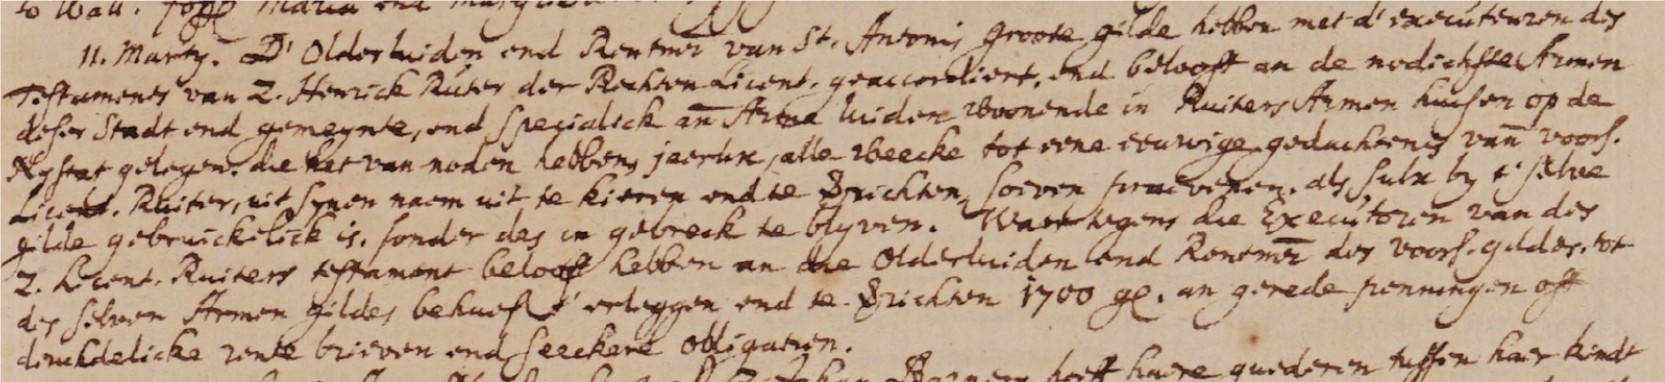 11. Marty. D' Olderluiden end Rentmr van St. Antonis groote gilde hebben met d' executeuren des
Testaments van Z. Henrick Ruter der Rechten Licent. geaccordiert, end belooft an de nodichste Armen
deser Stadt end gemeynte, end specialick an Arme luiden woonende in Ruiters Armen huisen op de
Nystat gelegen, die het van noden hebben, jaerlix, alle weecke tot eene eeuwige gedachtenis van voors.
Licent. Ruiter, uit synen naem uit te kieren end te Drichten, soeven praevenen, als sulx by t' selve
gilde gebruickelick is, sonder des in gebreck te blyven. Waer tegens die Executoren van des
Z. Licent. Ruiters testament belooft hebben an die Olderluiden end Rentmr des voors. gildes, tot
des selven Armen gildes behuef t' erleggen end te Drichten 1700 gl. an gerede penningen oft
deuchdelicke rente brieven end seeckere obligatien.
heeft haere goederen tussen haer kindt